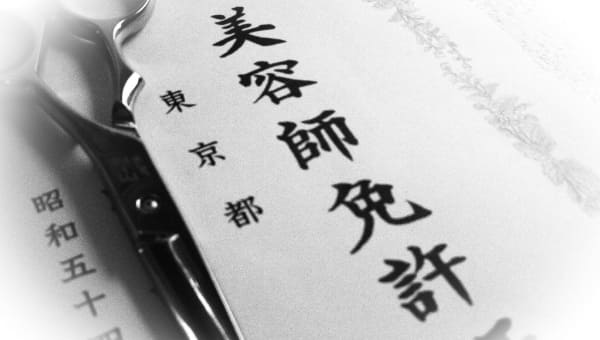 美容師免許
東京都
昭和五十四